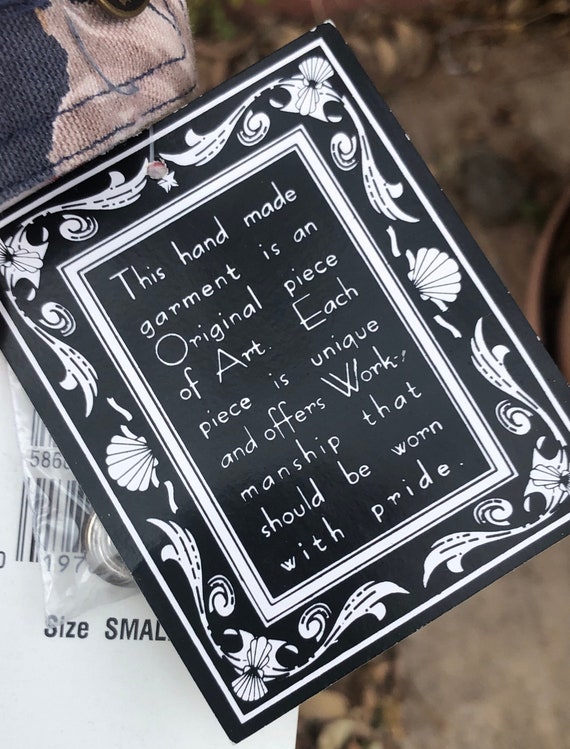 This hand made
garment is an
Original piece
of Art. Each
piece is unique
and offers Work-
manship that
should be worn
with pride.
5868
0
197
Size SMAL